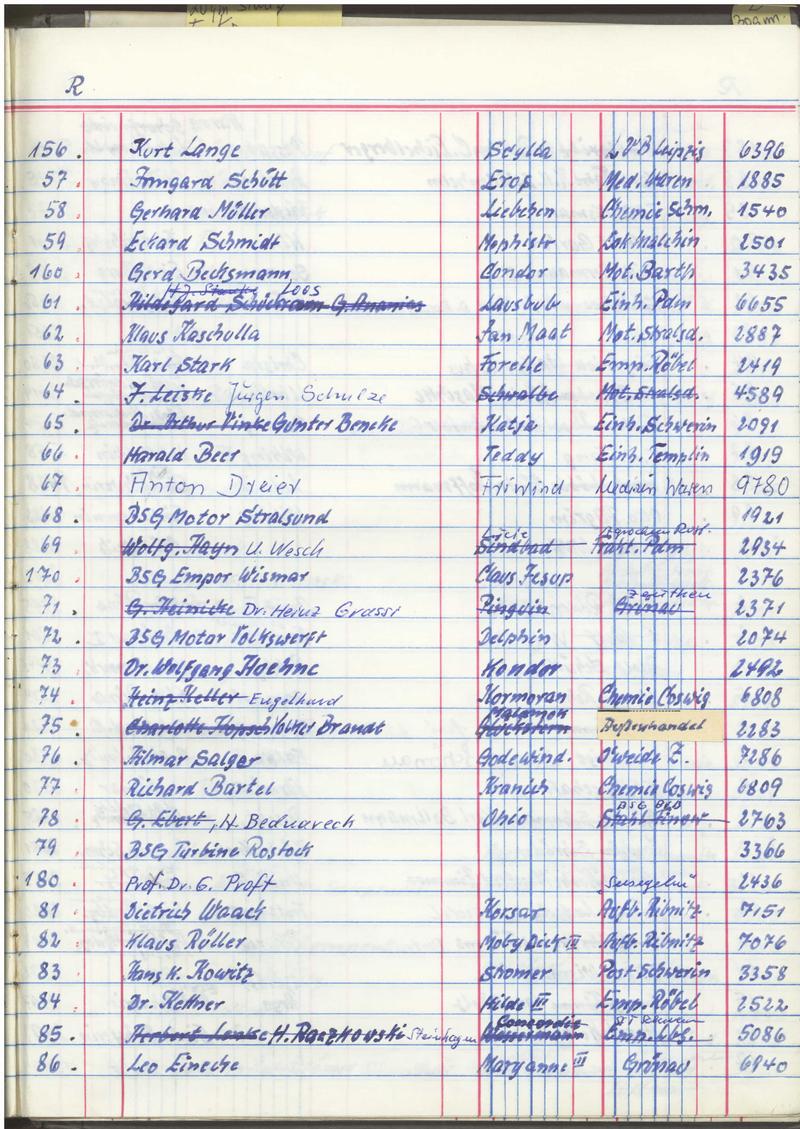 R
156. Kurt Lange Scylla LVB Leipzig 6396
57. Irmgard Schütt Eros Med. Waren 1885
58. Gerhard Müller Liebchen Chemie Schm. 1540
59. Eckard Schmidt Mephisto Lok Malchin 2501
160. Gerd Becksmann Condor Mot. Barth 3435
Loos
61. Hildegard Lausbub Einh. Pdm 6655
62. Klaus Kaschulla Jan Maat Mot. Stralsd. 2887
63. Karl Stark Forelle Emp. Röbel 2419
64. J. Leiske Jürgen Schulze Schwalbe Mot. Stralsd. 4589
65. Dr. Arthur Vinke Gunter Bencke Katja Einh. Schwerin 2091
66. Harald Beer Teddy Einh. Templin 1919
67. Anton Dreier Friwind Medizin Waren 9780
68. BSG Motor Stralsund 1921
69. Wolfg. Hayn U. Wesch Sindbad Pdm 2934
170. BSG Empor Wismar Claus Jesup 2376
Zeuthen
71. G. Heinicke Dr. Heinz Grassi Pinguin Grünau 2371
72. BSG Motor Volkswerft Delphin 2074
73. Dr. Wolfgang Hoehne Kondor 2492
74. Heinz Keller Engelhard Kormoran Chemie Coswig 6808
75. Charlotte Volker Brandt Glückstern Außenhandel 2283
76. Hilmar Salger Godewind. O'weide Z. 7286
77. Richard Bartel Kranich Chemie Coswig 6809
78. G. Ebert, H. Bednareck Ohio Stahl Finow 2763
79. BSG Turbine Rostock 3366
180. Prof. Dr. G. Proft 2436
81. Dietrich Waack Korsar Aufb. Ribnitz 7151
82. Klaus Rüller Moby Dick III Aufb. Ribnitz 7076
83. Hans K. Kowitz Stromer Post Schwerin 3358
84. Dr. Kettner Hilde III Emp. Röbel 2522
Concordia
85. Herbert H. Raczkowski Steinhagen Emp. 5086
86. Leo Einecke Maryanne III Grünau 6940